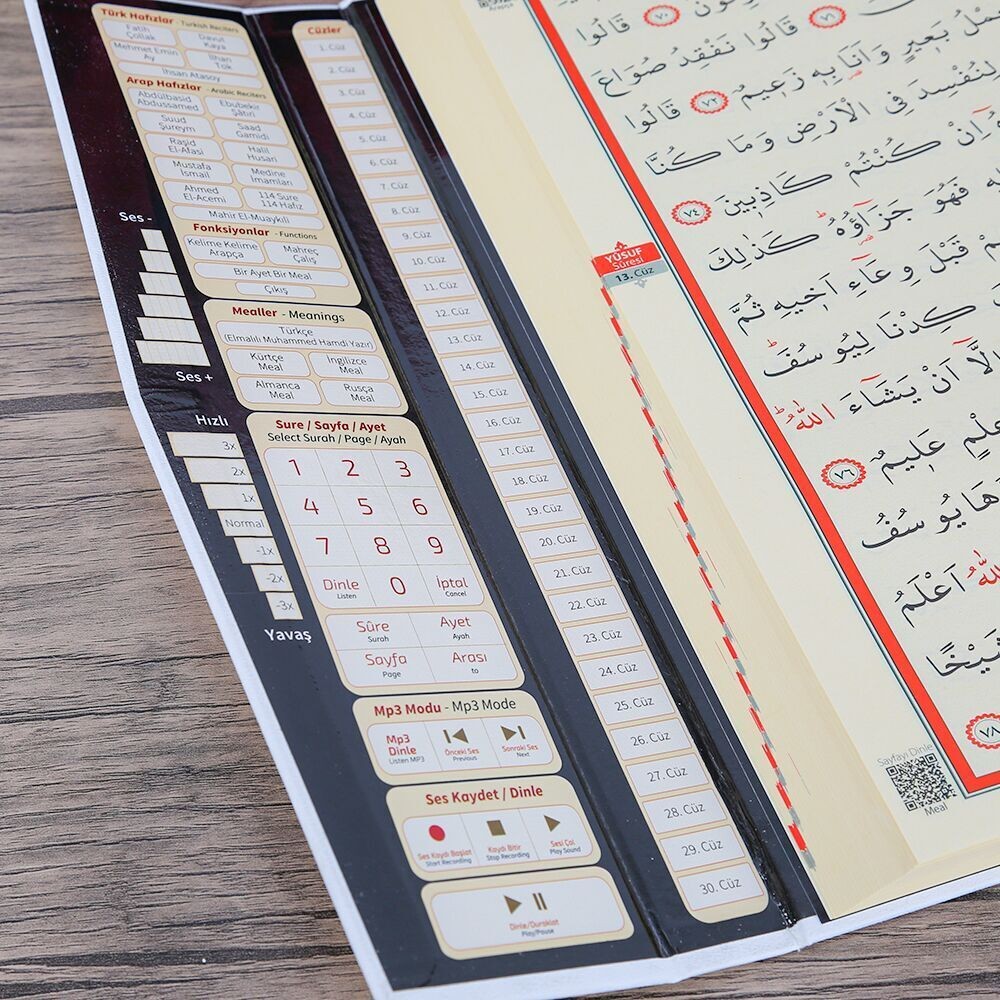 Türk Hafızlar - Turkish Reciters
Fatih Çollak
Davut Kaya
Mehmet Emin Ay
İlhan Tok
İhsan Atasoy
Arap Hafızlar - Arabic Reciters
Abdülbasid Abdussamed
Ebubekir Şâtıri
Suud Şureym
Saad Gamidi
Raşid El-Afasi
Halil Husari
Mustafa İsmail
Medine İmamları
Ahmed El-Acemi
114 Sure 114 Hafız
Mahir El-Muaykılî
Fonksiyonlar - Functions
Kelime Kelime Arapça
Mahreç Çalış
Bir Ayet Bir Meal
Çıkış
Mealler - Meanings
Türkçe
(Elmalılı Muhammed Hamdi Yazır)
Kürtçe Meal
İngilizce Meal
Almanca Meal
Rusça Meal
Sure / Sayfa / Ayet
Select Surah / Page / Ayah
1 2 3
4 5 6
7 8 9
Dinle 0 İptal
Listen Cancel
Sûre Ayet
Surah Ayah
Sayfa Arası
Page to
Mp3 Modu - Mp3 Mode
Mp3 Dinle
Listen MP3
Önceki Ses
Previous
Sonraki Ses
Next
Ses Kaydet / Dinle
Ses Kaydı Başlat
Start Recording
Kaydı Bitir
Stop Recording
Sesi Çal
Play Sound
Dinle/Duraklat
Play/Pause
Ses -
Ses +
Hızlı
3x
2x
1x
Normal
-1x
-2x
-3x
Yavaş
Cüzler
1. Cüz
2. Cüz
3. Cüz
4. Cüz
5. Cüz
6. Cüz
7. Cüz
8. Cüz
9. Cüz
10. Cüz
11. Cüz
12. Cüz
13. Cüz
14. Cüz
15. Cüz
16. Cüz
17. Cüz
18. Cüz
19. Cüz
20. Cüz
21. Cüz
22. Cüz
23. Cüz
24. Cüz
25. Cüz
26. Cüz
27. Cüz
28. Cüz
29. Cüz
30. Cüz
YÛSUF
Sûresi
13. Cüz
٧٠ قَالُوا
٧١ قَالُوا نَفْقِدُ صُوَاعَ
حِمْلُ بَعِيرٍ وَاَنَا بِه۪ زَع۪يمٌ ٧٢ قَالُوا
لِنُفْسِدَ فِي الْاَرْضِ وَمَا كُنَّا
اِنْ كُنْتُمْ كَاذِب۪ينَ ٧٤
فَهُوَ جَزَٓاؤُ۬هُ كَذٰلِكَ
قَبْلَ وِعَٓاءِ اَخ۪يهِ ثُمَّ
كِدْنَا لِيُوسُفَ
اِلَّٓا اَنْ يَشَٓاءَ اللّٰهُ
عِلْمٍ عَل۪يمٌ ٧٦
هَا يُوسُفُ
اللّٰهُ اَعْلَمُ
شَيْخًا
٧٨
Sayfayı Dinle
Meal